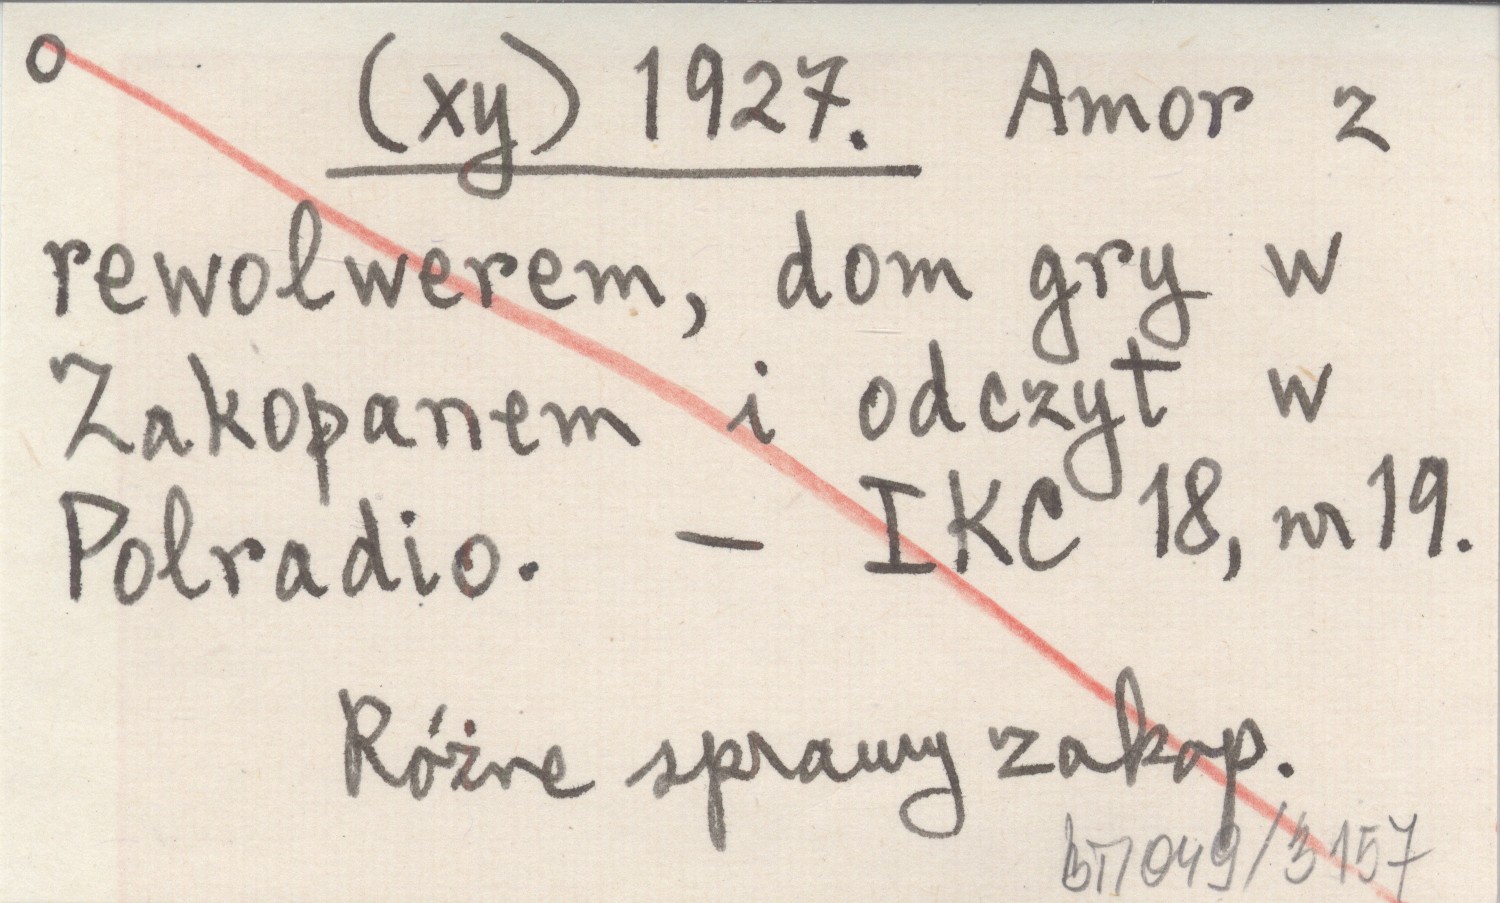 o (xy) 1927. Amor z
rewolwerem, dom gry w
Zakopanem i odczyt w
Polradio. — IKC 18, nr 19.
Różne sprawy zakop.
049/3157